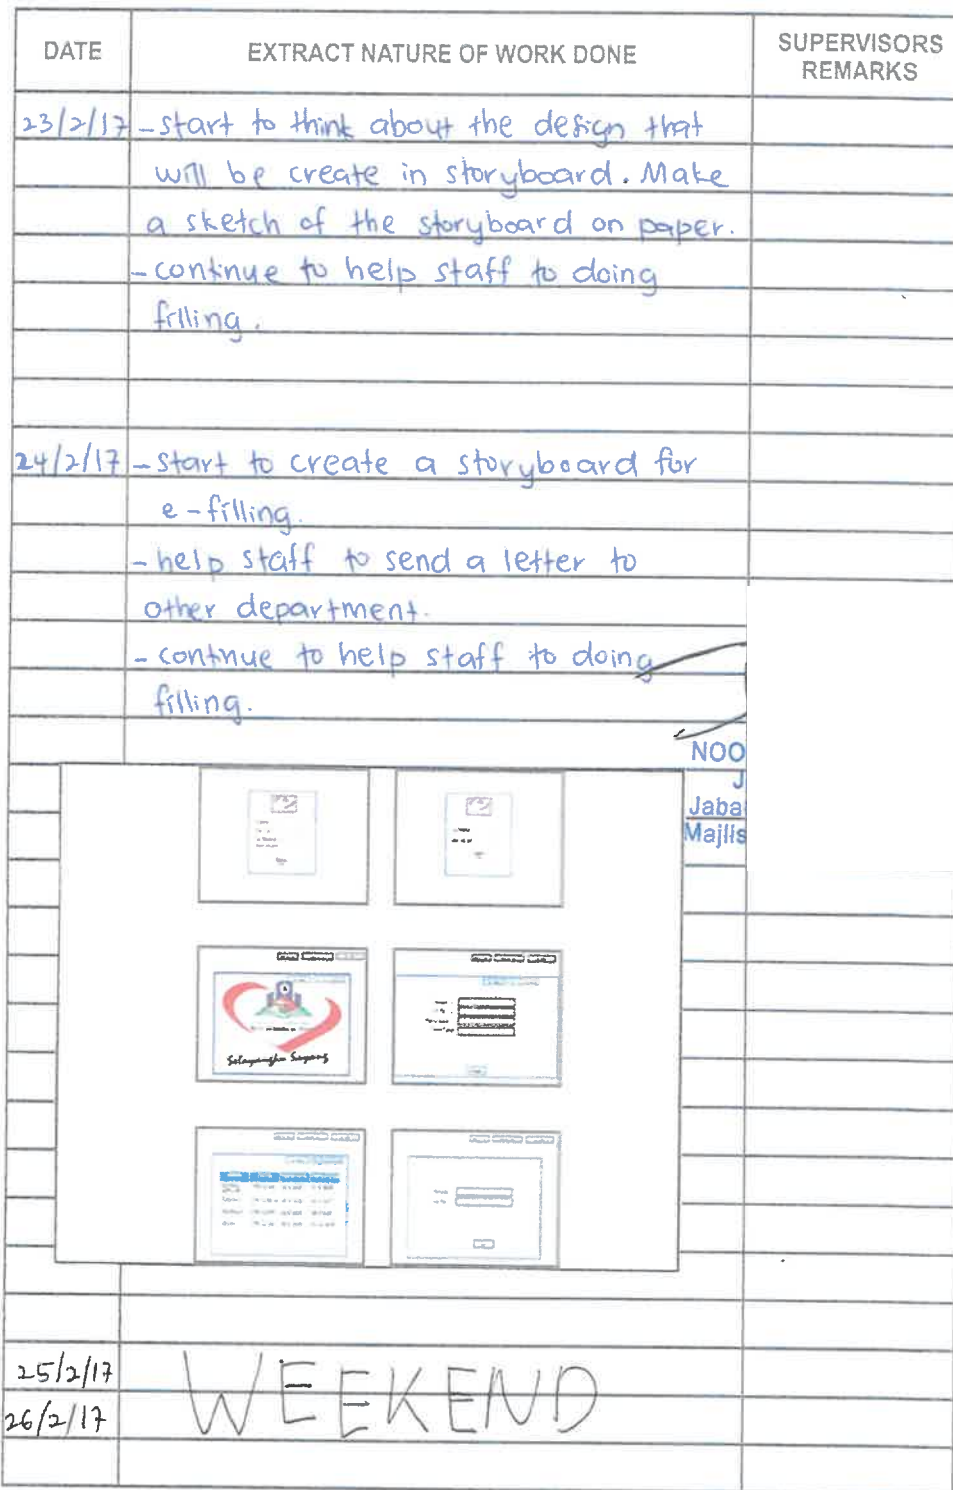 DATE
EXTRACT NATURE OF WORK DONE
SUPERVISORS
REMARKS
23/2/17
- start to think about the design that
will be create in storyboard. Make
a sketch of the storyboard on paper.
- continue to help staff to doing
filling.
24/2/17
- start to create a storyboard for
e-filling.
- help staff to send a letter to
other department.
- continue to help staff to doing
filling.
NOO
J
Jaba
Majlis
Selayangku Sayang
25/2/17
26/2/17
WEEKEND